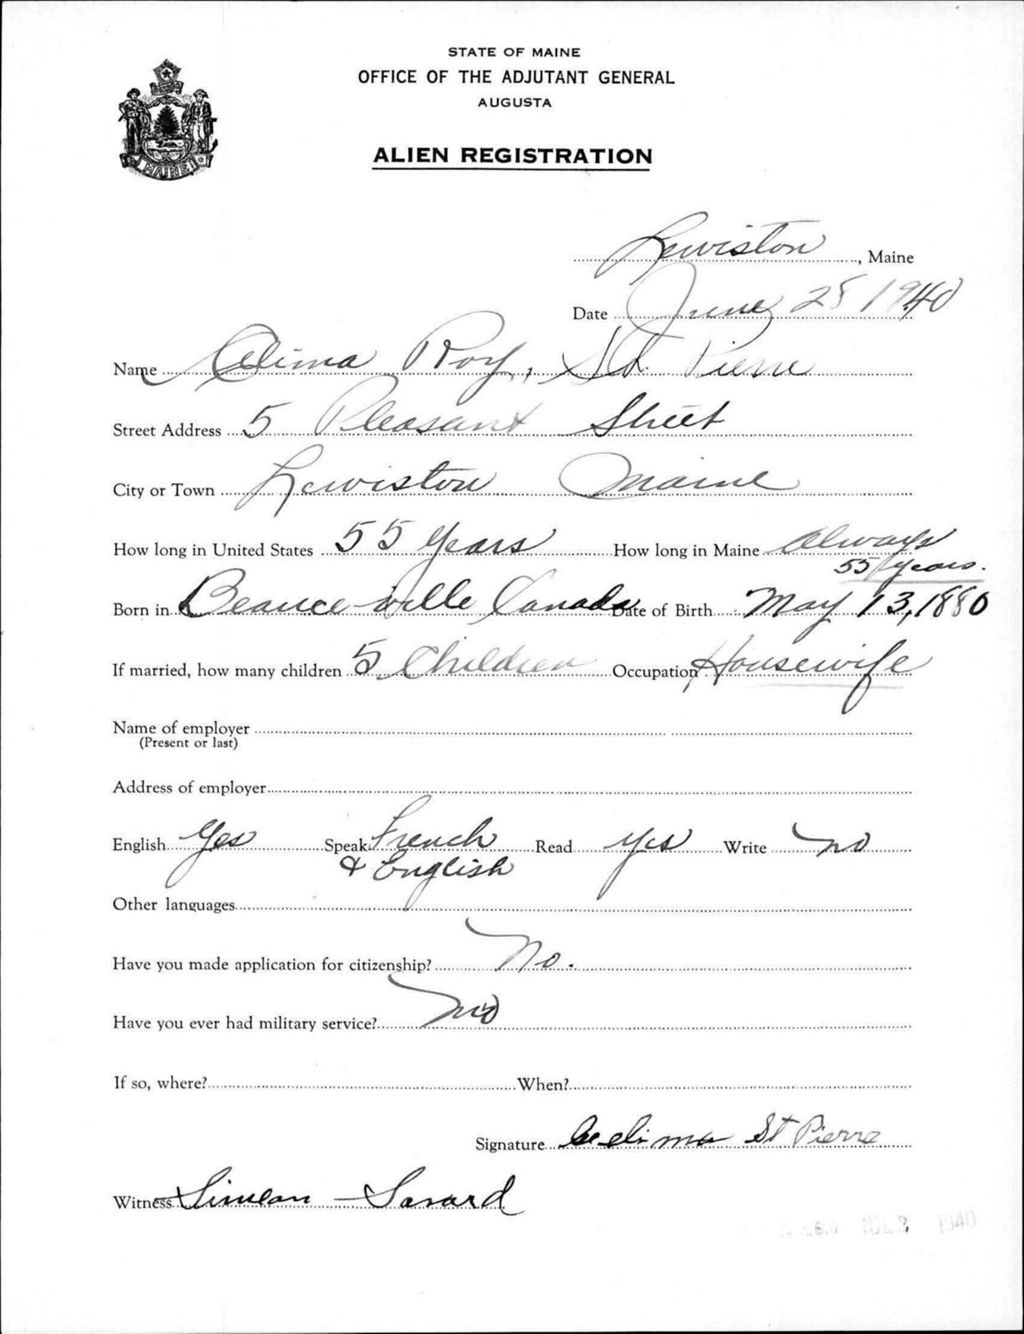 STATE OF MAINE
OFFICE OF THE ADJUTANT GENERAL
AUGUSTA
ALIEN REGISTRATION
MAINE
Lewiston, Maine
Date June 28 1940
Name Celima Roy, St. Pierre
Street Address 5 Pleasant Street
City or Town Lewiston Maine
How long in United States 55 Years How long in Maine Always
55 years.
Born in Beauce-ville Canada Date of Birth May 13, 1880
If married, how many children 5 Children Occupation Housewife
Name of employer
(Present or last)
Address of employer
English Yes Speak French Read yes Write no
& English
Other languages
Have you made application for citizenship? No.
Have you ever had military service? no
If so, where? When?
Signature Celima St Pierre
Witness Simeon Savard
JUL 2 1940